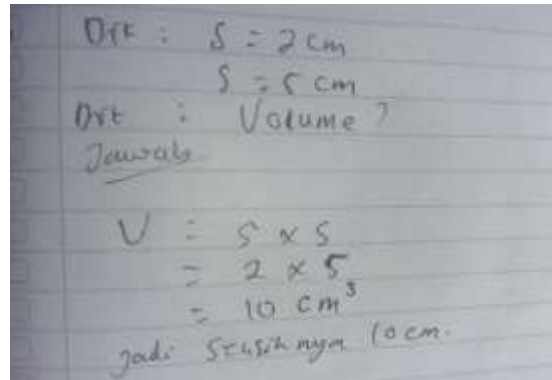 Dik : S = 2 cm
S = 5 cm
Dit : Volume ?
Jawab
V = S x S
= 2 x 5
= 10 cm³
Jadi selisihnya 10 cm.